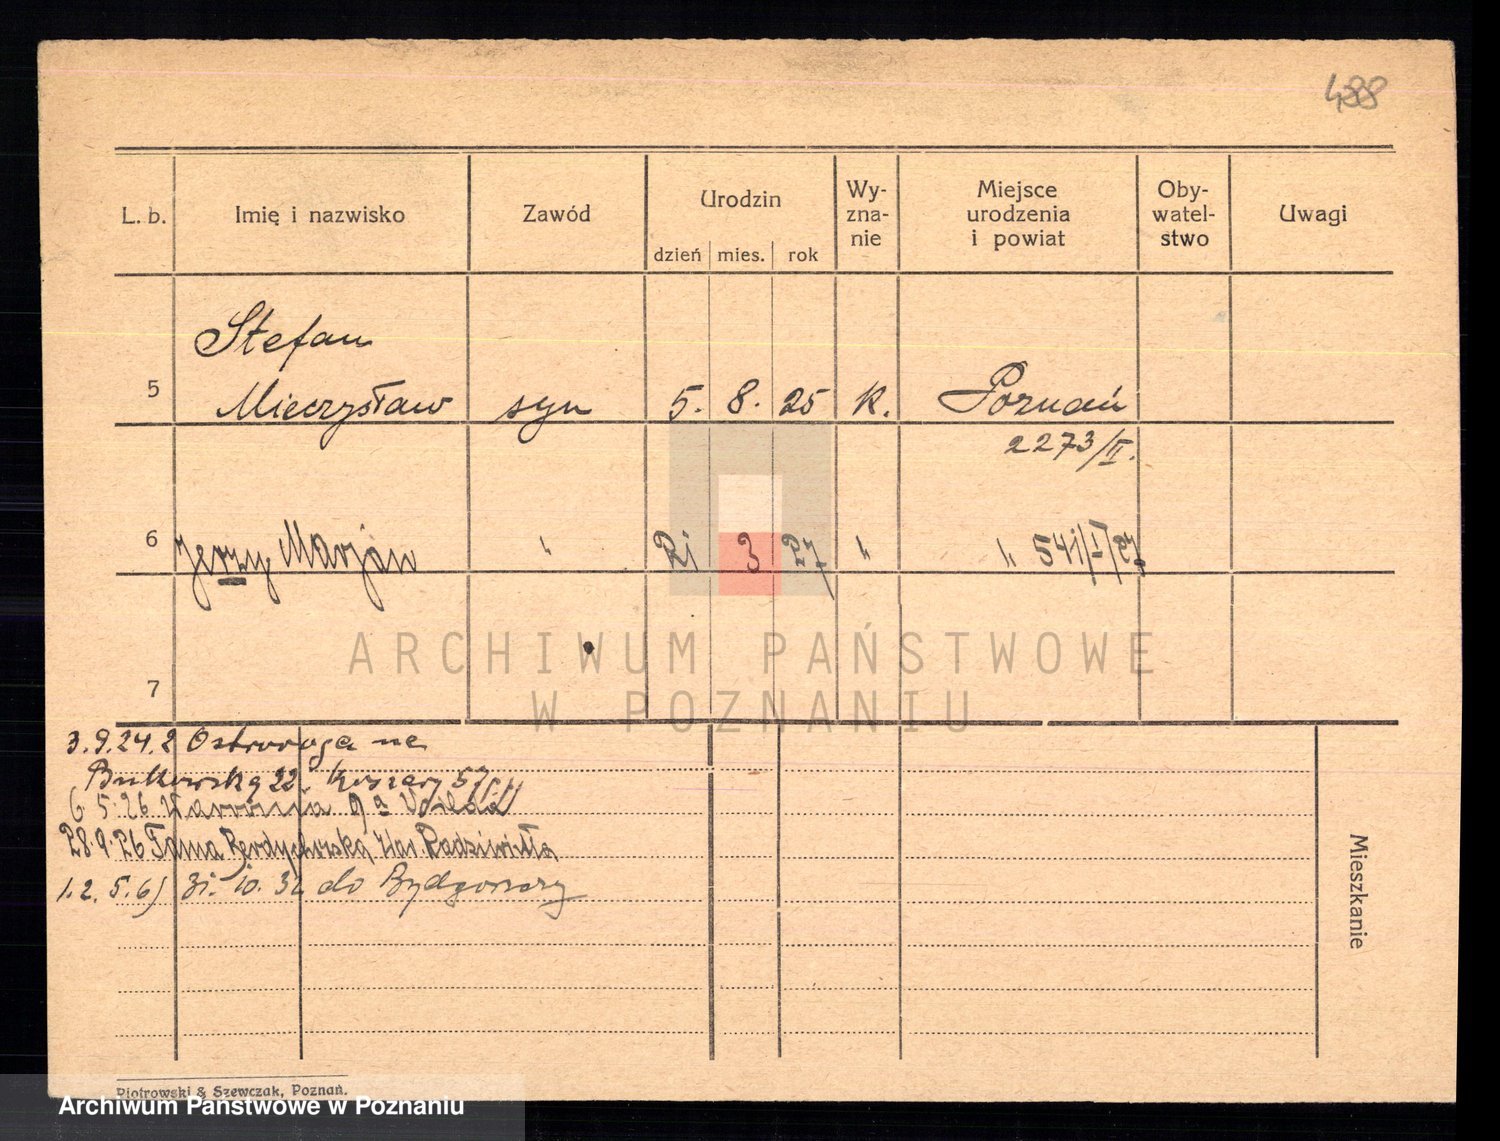 488
L. b. Imię i nazwisko Zawód Urodzin Wy-zna-nie Miejsce urodzenia i powiat Oby-watel-stwo Uwagi
dzień mies. rok
Stefan
5 Mieczysław syn 5. 8. 25 k. Poznań
2273/II.
6 Jerzy Marjan " 21 3 27 " " 541/I/27
7
ARCHIWUM PAŃSTWOWE
W POZNANIU
3.9.24. 2 Ostroroga na
Bukowską 22 Koszary 57
6 5.26 9a
28.9.26 Kar. Radziwiłła
1. 2. 5. 6) 31. 10. 32 do Bydgoszczy
Mieszkanie
Piotrowski & Szewczak, Poznań.
Archiwum Państwowe w Poznaniu